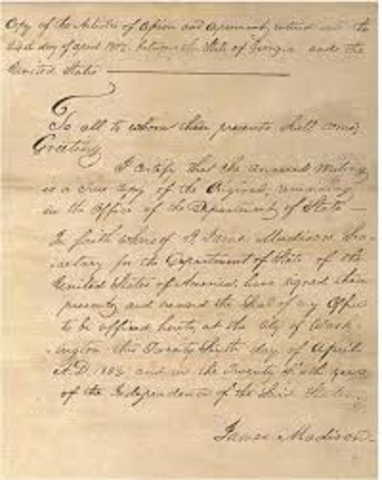 Copy of the Articles of and Agreement, entered into the
24th day of April 1802. between the State of Georgia and the
United States
To all to whom these presents shall come,
Greeting
I certify that the annexed Writing
is a True Copy of the Original, remaining
in the Office of the Department of State
In faith whereof I, James Madison Sec-
retary for the Department of State of the
United States of America, have signed these
presents, and caused the Seal of my Office
to be affixed hereto, at the City of Wash-
ington this Twenty Sixth day of April
A.D. 1802 and in the Twenty Sixth year
of the Independence of the Said States.
James Madison